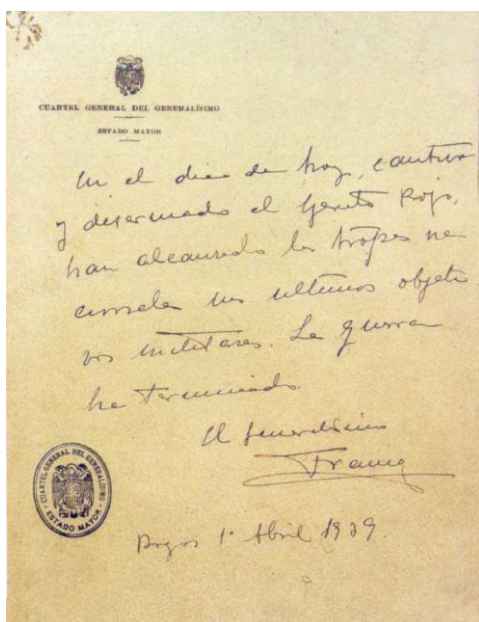 CUARTEL GENERAL DEL GENERALÍSIMO
ESTADO MAYOR
En el dia de hoy, cautivo
y desarmado el Ejercito Rojo,
han alcanzado las tropas na
cionales sus ultimos objeti
vos militares. La guerra
ha terminado.
El Generalísimo
Franco
Burgos 1º Abril 1939.
CUARTEL GENERAL DEL GENERALÍSIMO
ESTADO MAYOR